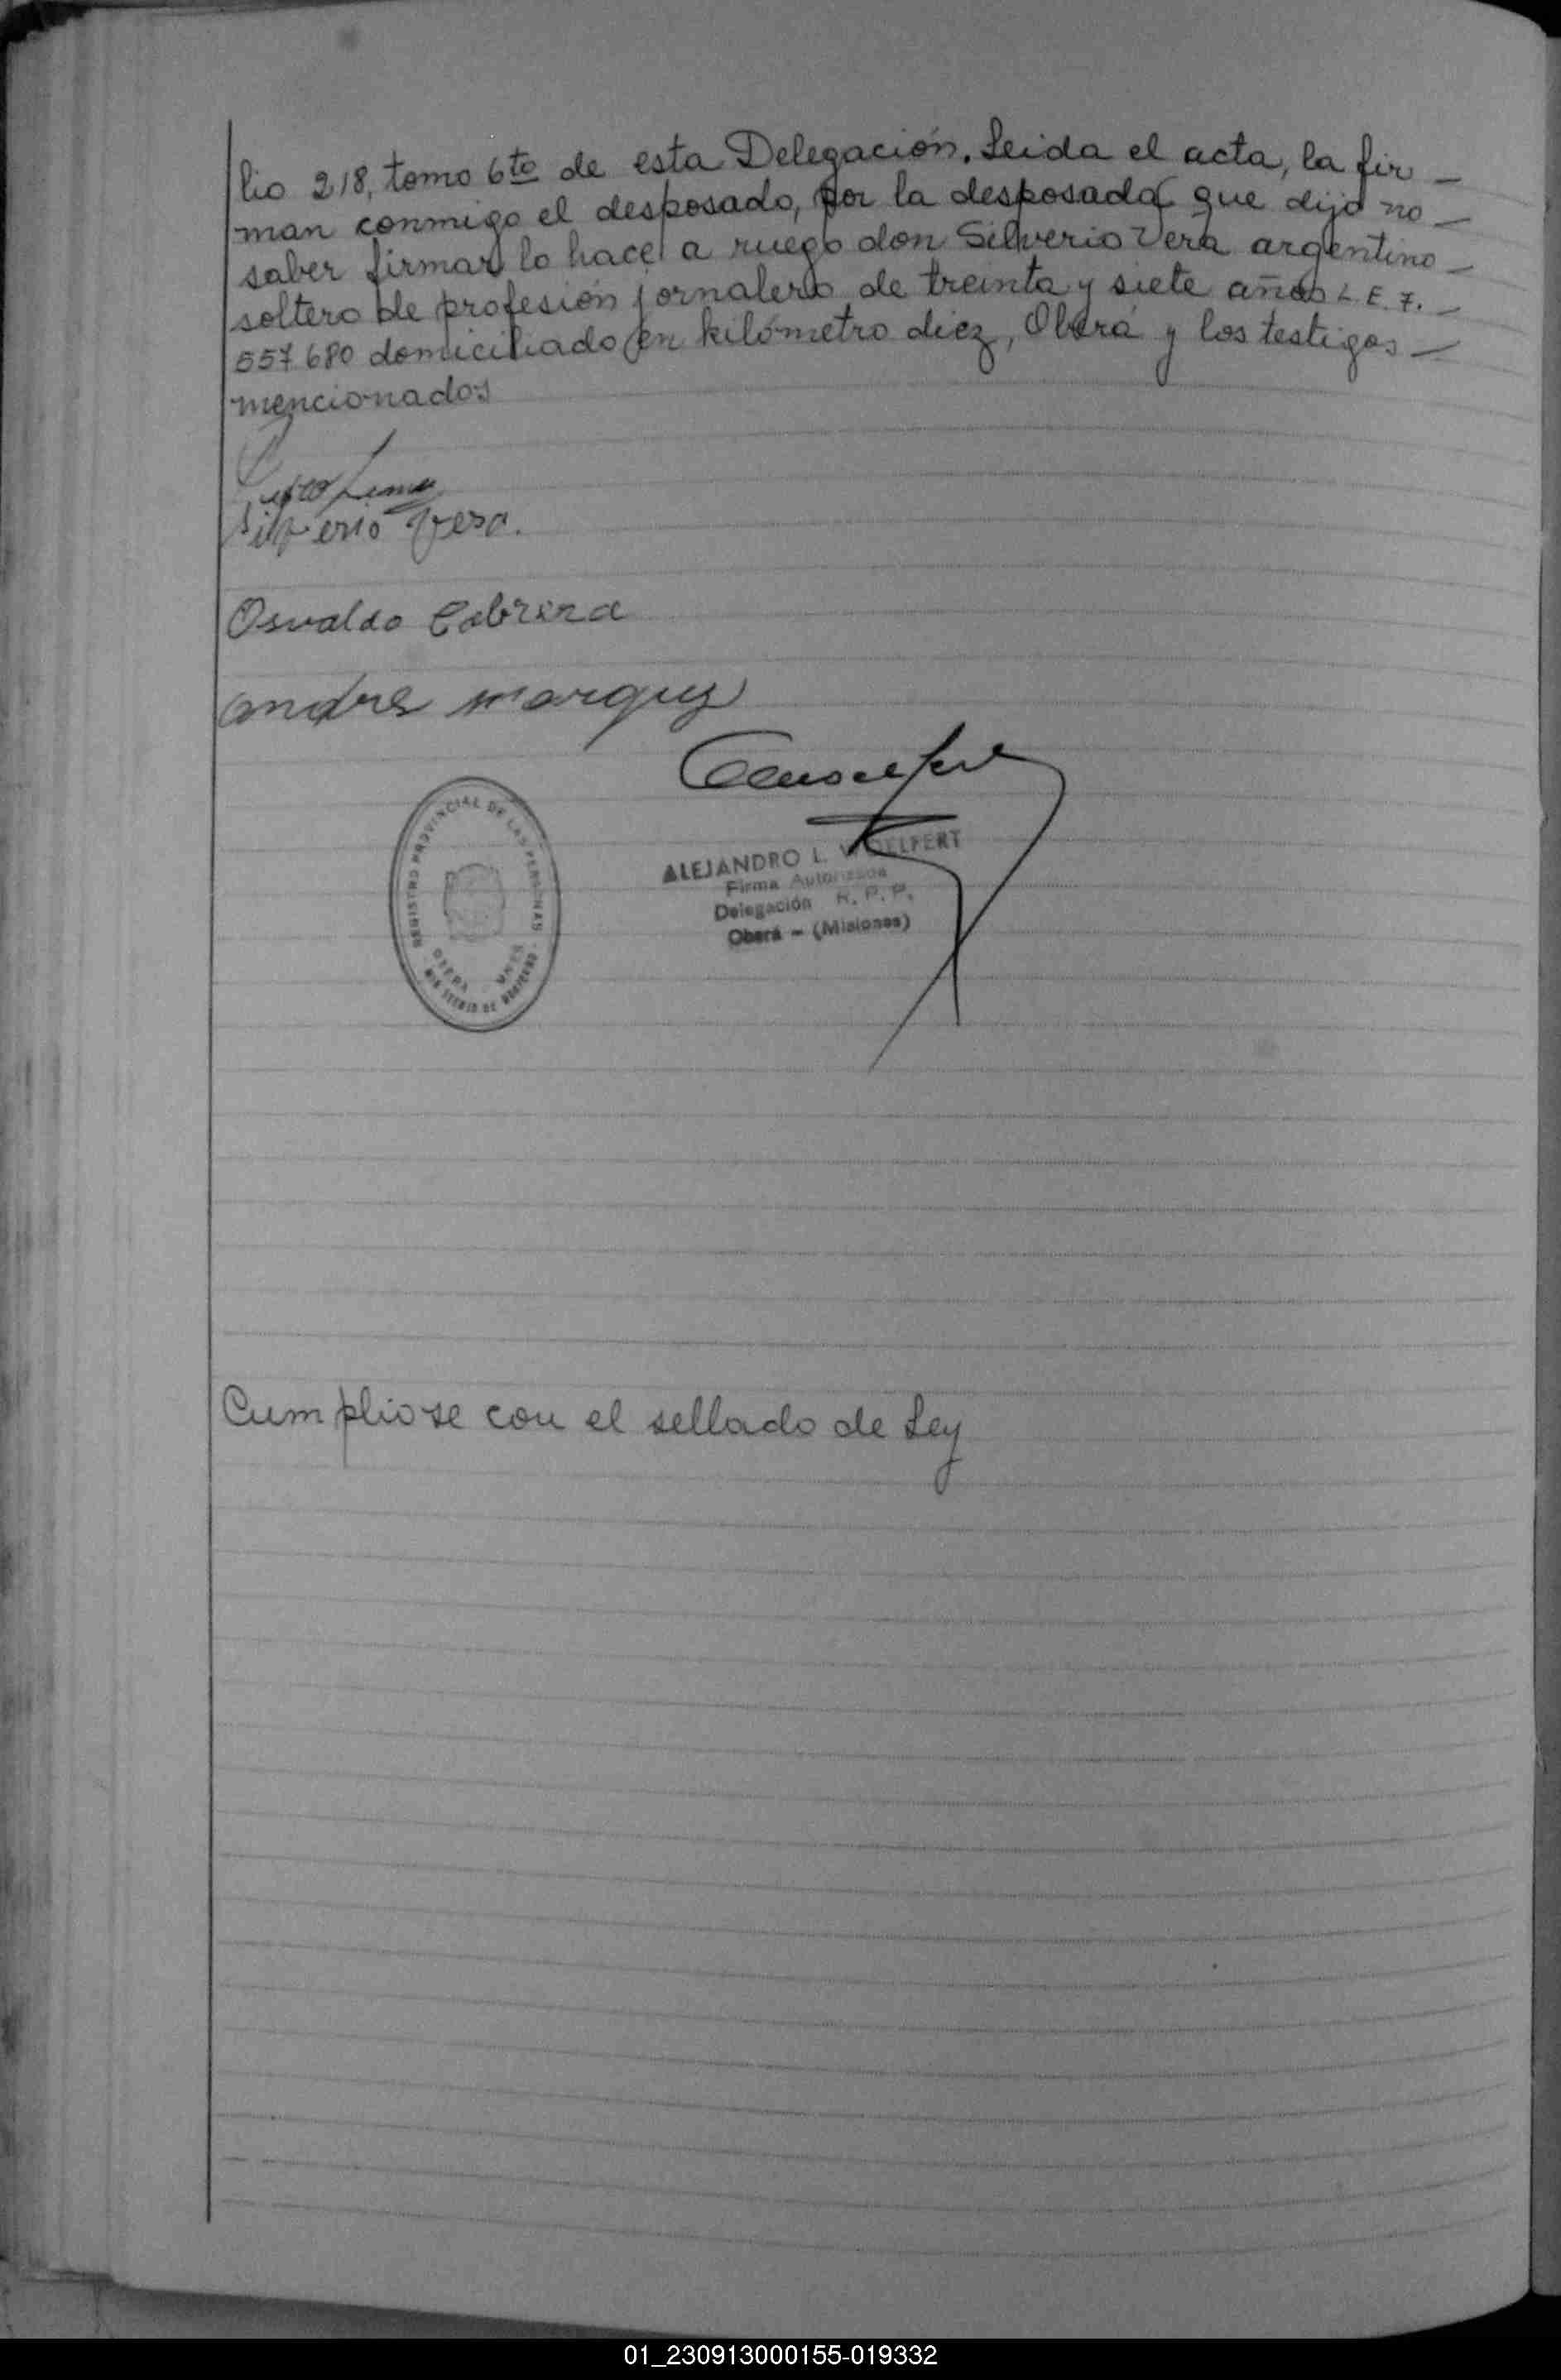 lio 218, tomo 6to de esta Delegación. Leida el acta, la fir -
man conmigo el desposado, por la desposada que dijo no -
saber firmar lo hace a ruego don Silverio Vera argentino -
soltero de profesión jornalero de treinta y siete años L. E. 7. -
557 680 domiciliado en kilómetro diez, Oberá y los testigos -
mencionados
Silverio Vera.
Osvaldo Cabrera
andres marquez
REGISTRO PROVINCIAL DE LAS PERSONAS
OBERA MNES
MINISTERIO DE GOBIERNO
ALEJANDRO L. WOELFERT
Firma Autorizada
Delegación R. P. P.
Oberá - (Misiones)
Cumpliose con el sellado de Ley
01_230913000155-019332